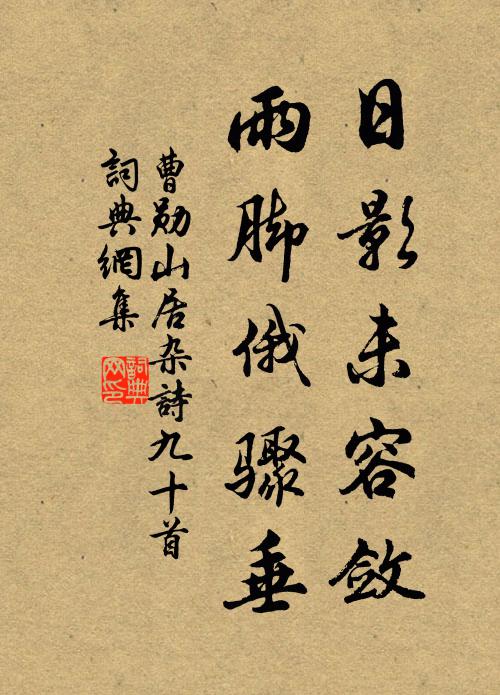 日影未容斂
雨脚俄驟垂
曹勋山居杂詩九十首
詞典網集
詞典網印